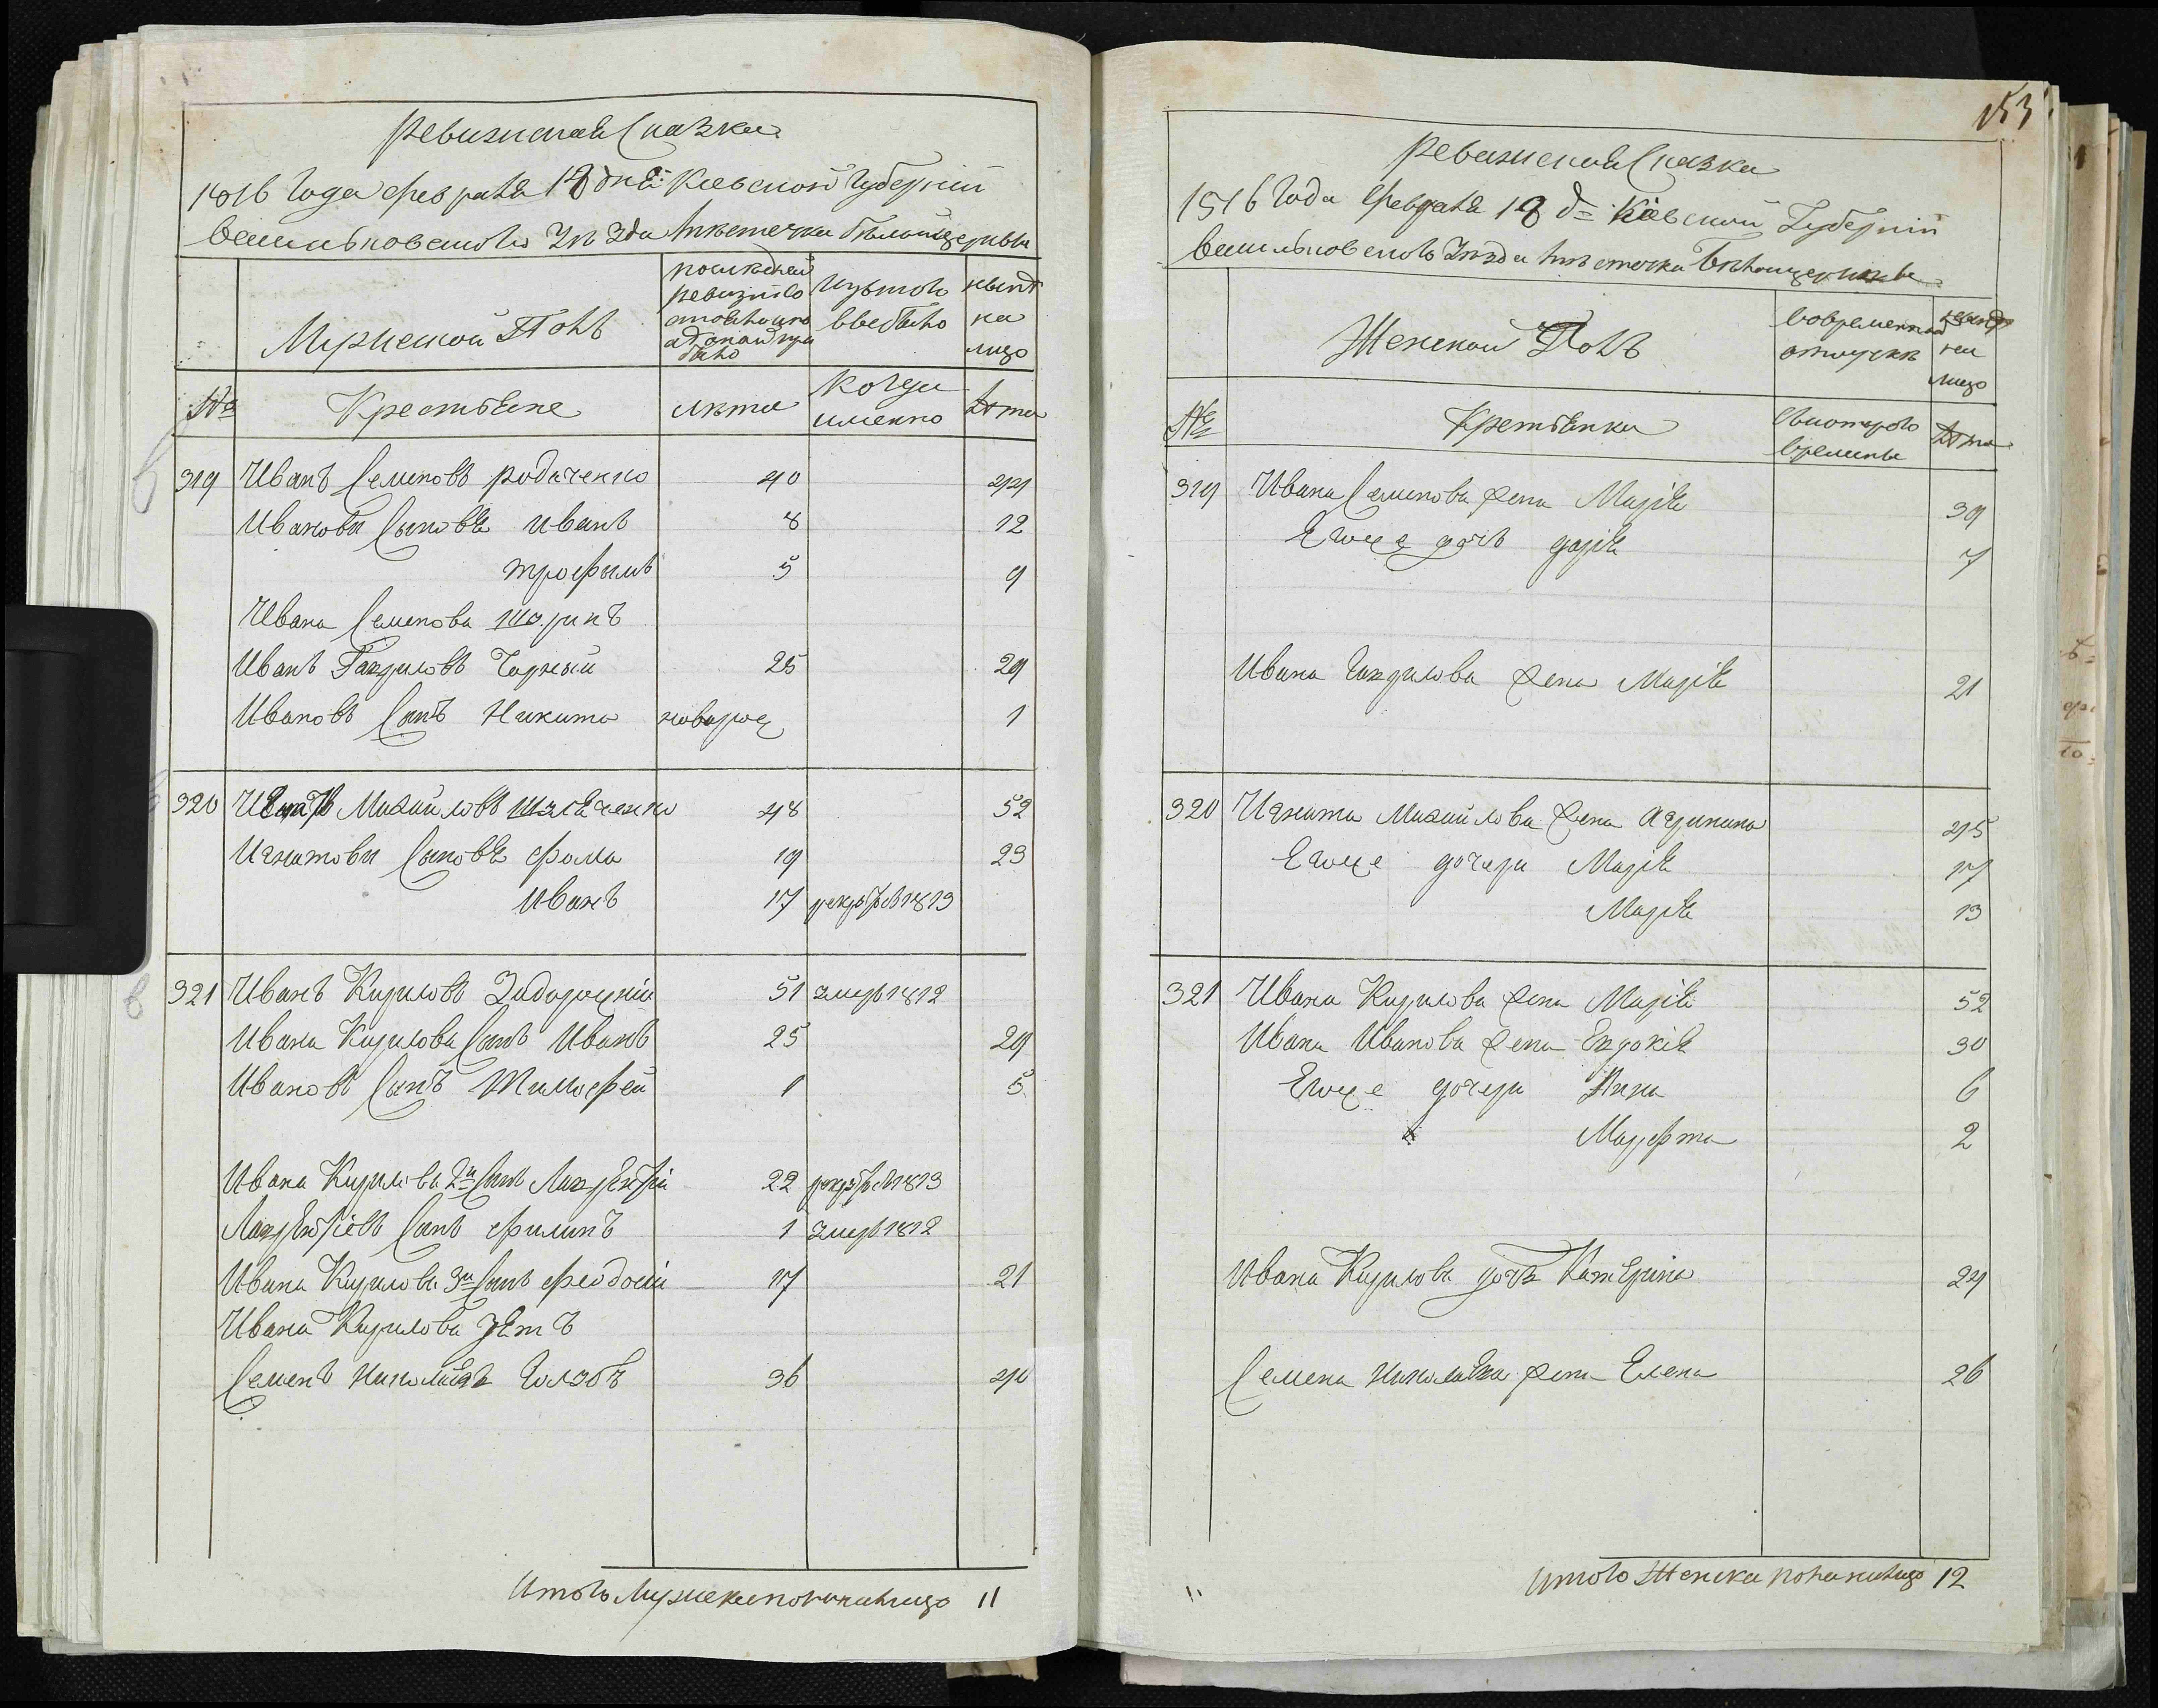 Ревизская Сказка
1816 Года февраля 18 дня Киевской Губернiи
васильковского Уѣзда мѣстечка бѣлойцеркви
Мужеской Полъ
последней ревизiи состояло и по оной было
изъ того выбыло
нынѣ на лицо
№
Крестьяне
лѣта
Когда именно
лѣта
319 Иванъ Семеновъ родаченко 40 44
Ивановы Сыновья иванъ 8 12
трофымъ 5 9
Ивана Семенова шюринъ
Иванъ Гаврыловъ Чорный 25 29
Ивановъ Сынъ Никита наворож 1
320 Игнатъ Михайловъ 48 52
Игнатовы Сыновья фома 19 23
Иванъ 17 рекрут в 1813
321 Иванъ Кириловъ Задорожнiй 51 умер 1812
Ивана Кирилова Сынъ Иванъ 25 29
Ивановъ Сынъ Тимофей 1 5
Ивана Кирилова 2й Сынъ Лаврентiй 22 рекрут в 1813
Лаврентiевъ Сынъ филипъ 1 умер 1812
Ивана Кирилова 3й Сынъ феодосiй 17 21
Ивана Кирилова зять
Семенъ Николаевъ Голубъ 36 40
Итого Мужеска пола налицо 11
153
Ревизская Сказка
1816 Года Февраля 18 д= Кiевской Губернiи
васильковского Уѣзда мѣстечка Бѣлойцеркви
Женской Полъ
во временной отлучкѣ
нынѣ на лицо
№
Крестьянки
с которого времени
лѣта
319 Ивана Семенова жена Марiя 39
Егоже дочь дарiя 7
Ивана Гаврилова жена Марiя 21
320 Игната Михайлова жена агрипина 45
Егоже дочери Марiя 17
Марiя 13
321 Ивана Кирилова жена Марiя 52
Ивана Иванова жена Евдокiя 30
Егоже дочери Анна 6
Марфта 2
Ивана Кирилова дочь Катерина 24
Семена Николаева жена Елена 26
Итого Женска пола налицо 12